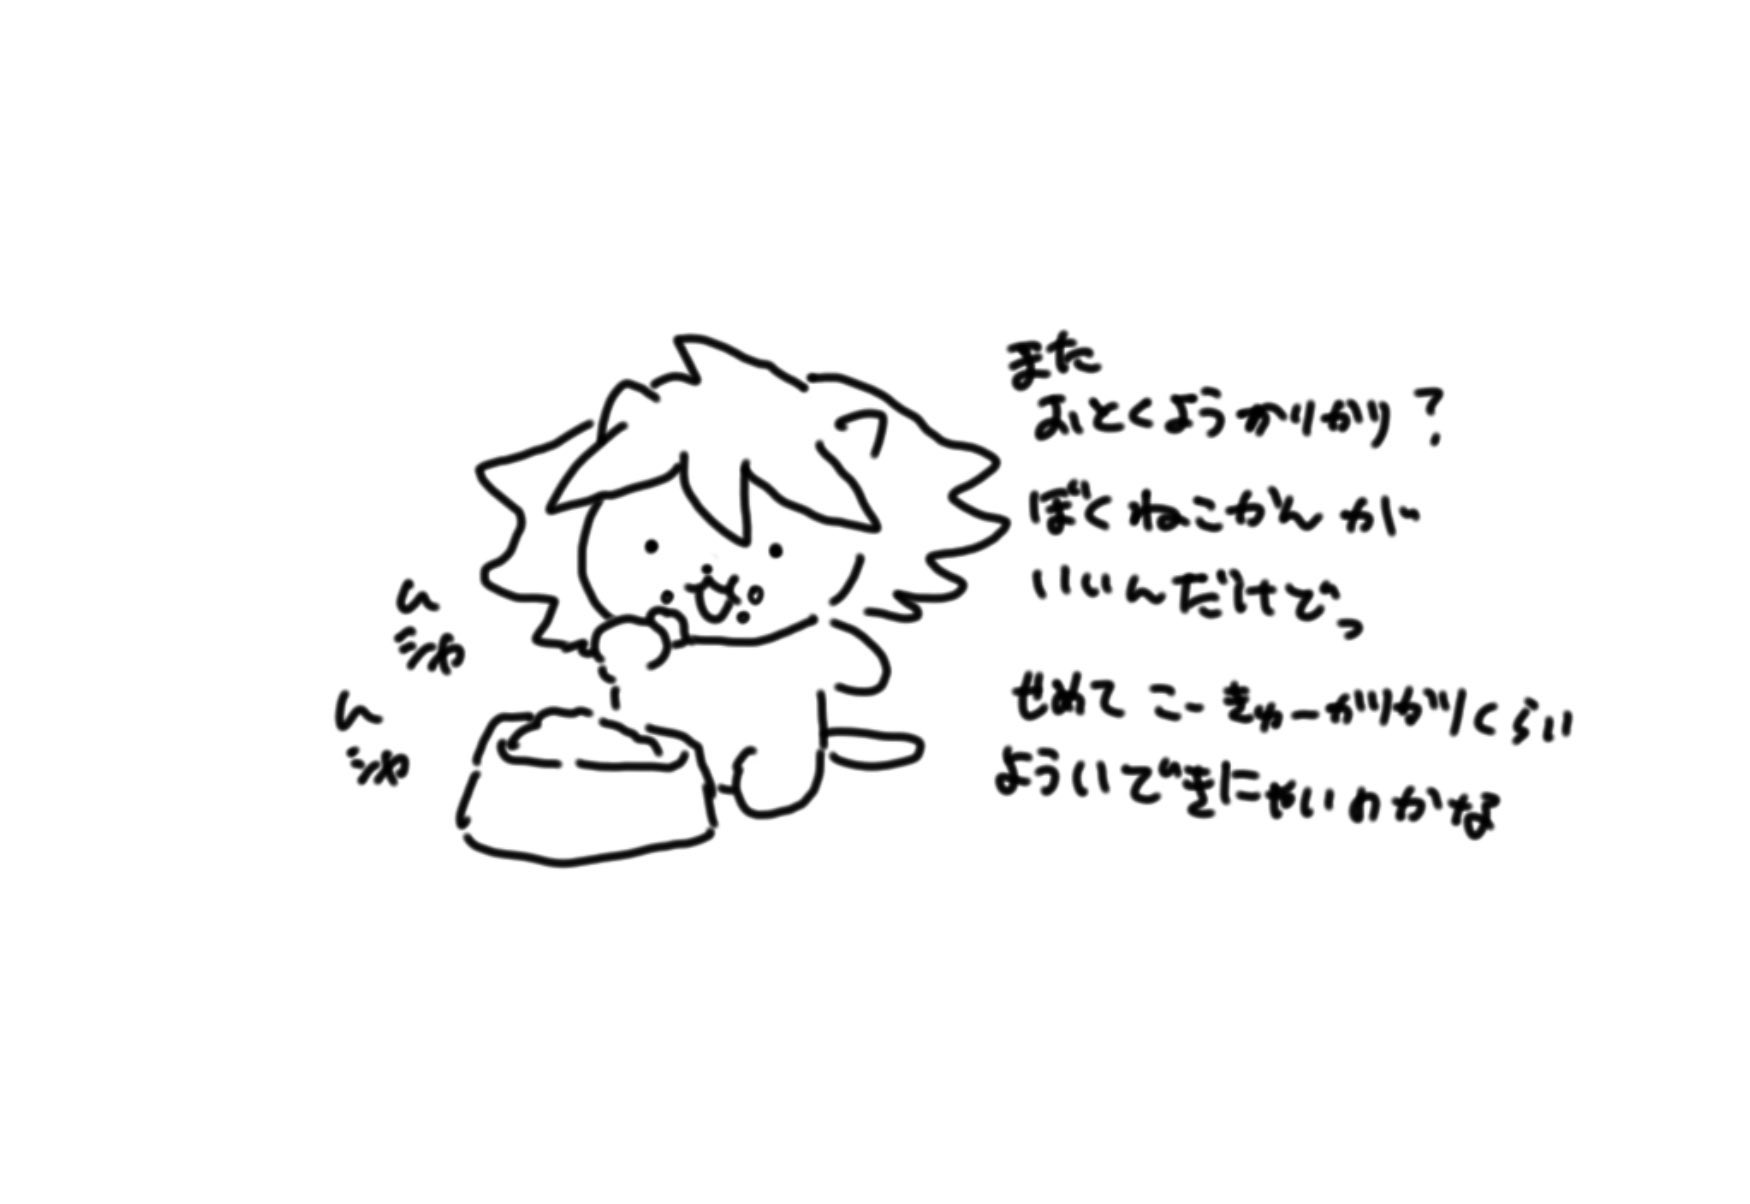 また
おとくようかりかり?
ぼくねこかんが
いいんだけどっ
せめてこーきゅーがりがりくらい
よういできにゃいのかな
ムシャ
ムシャ